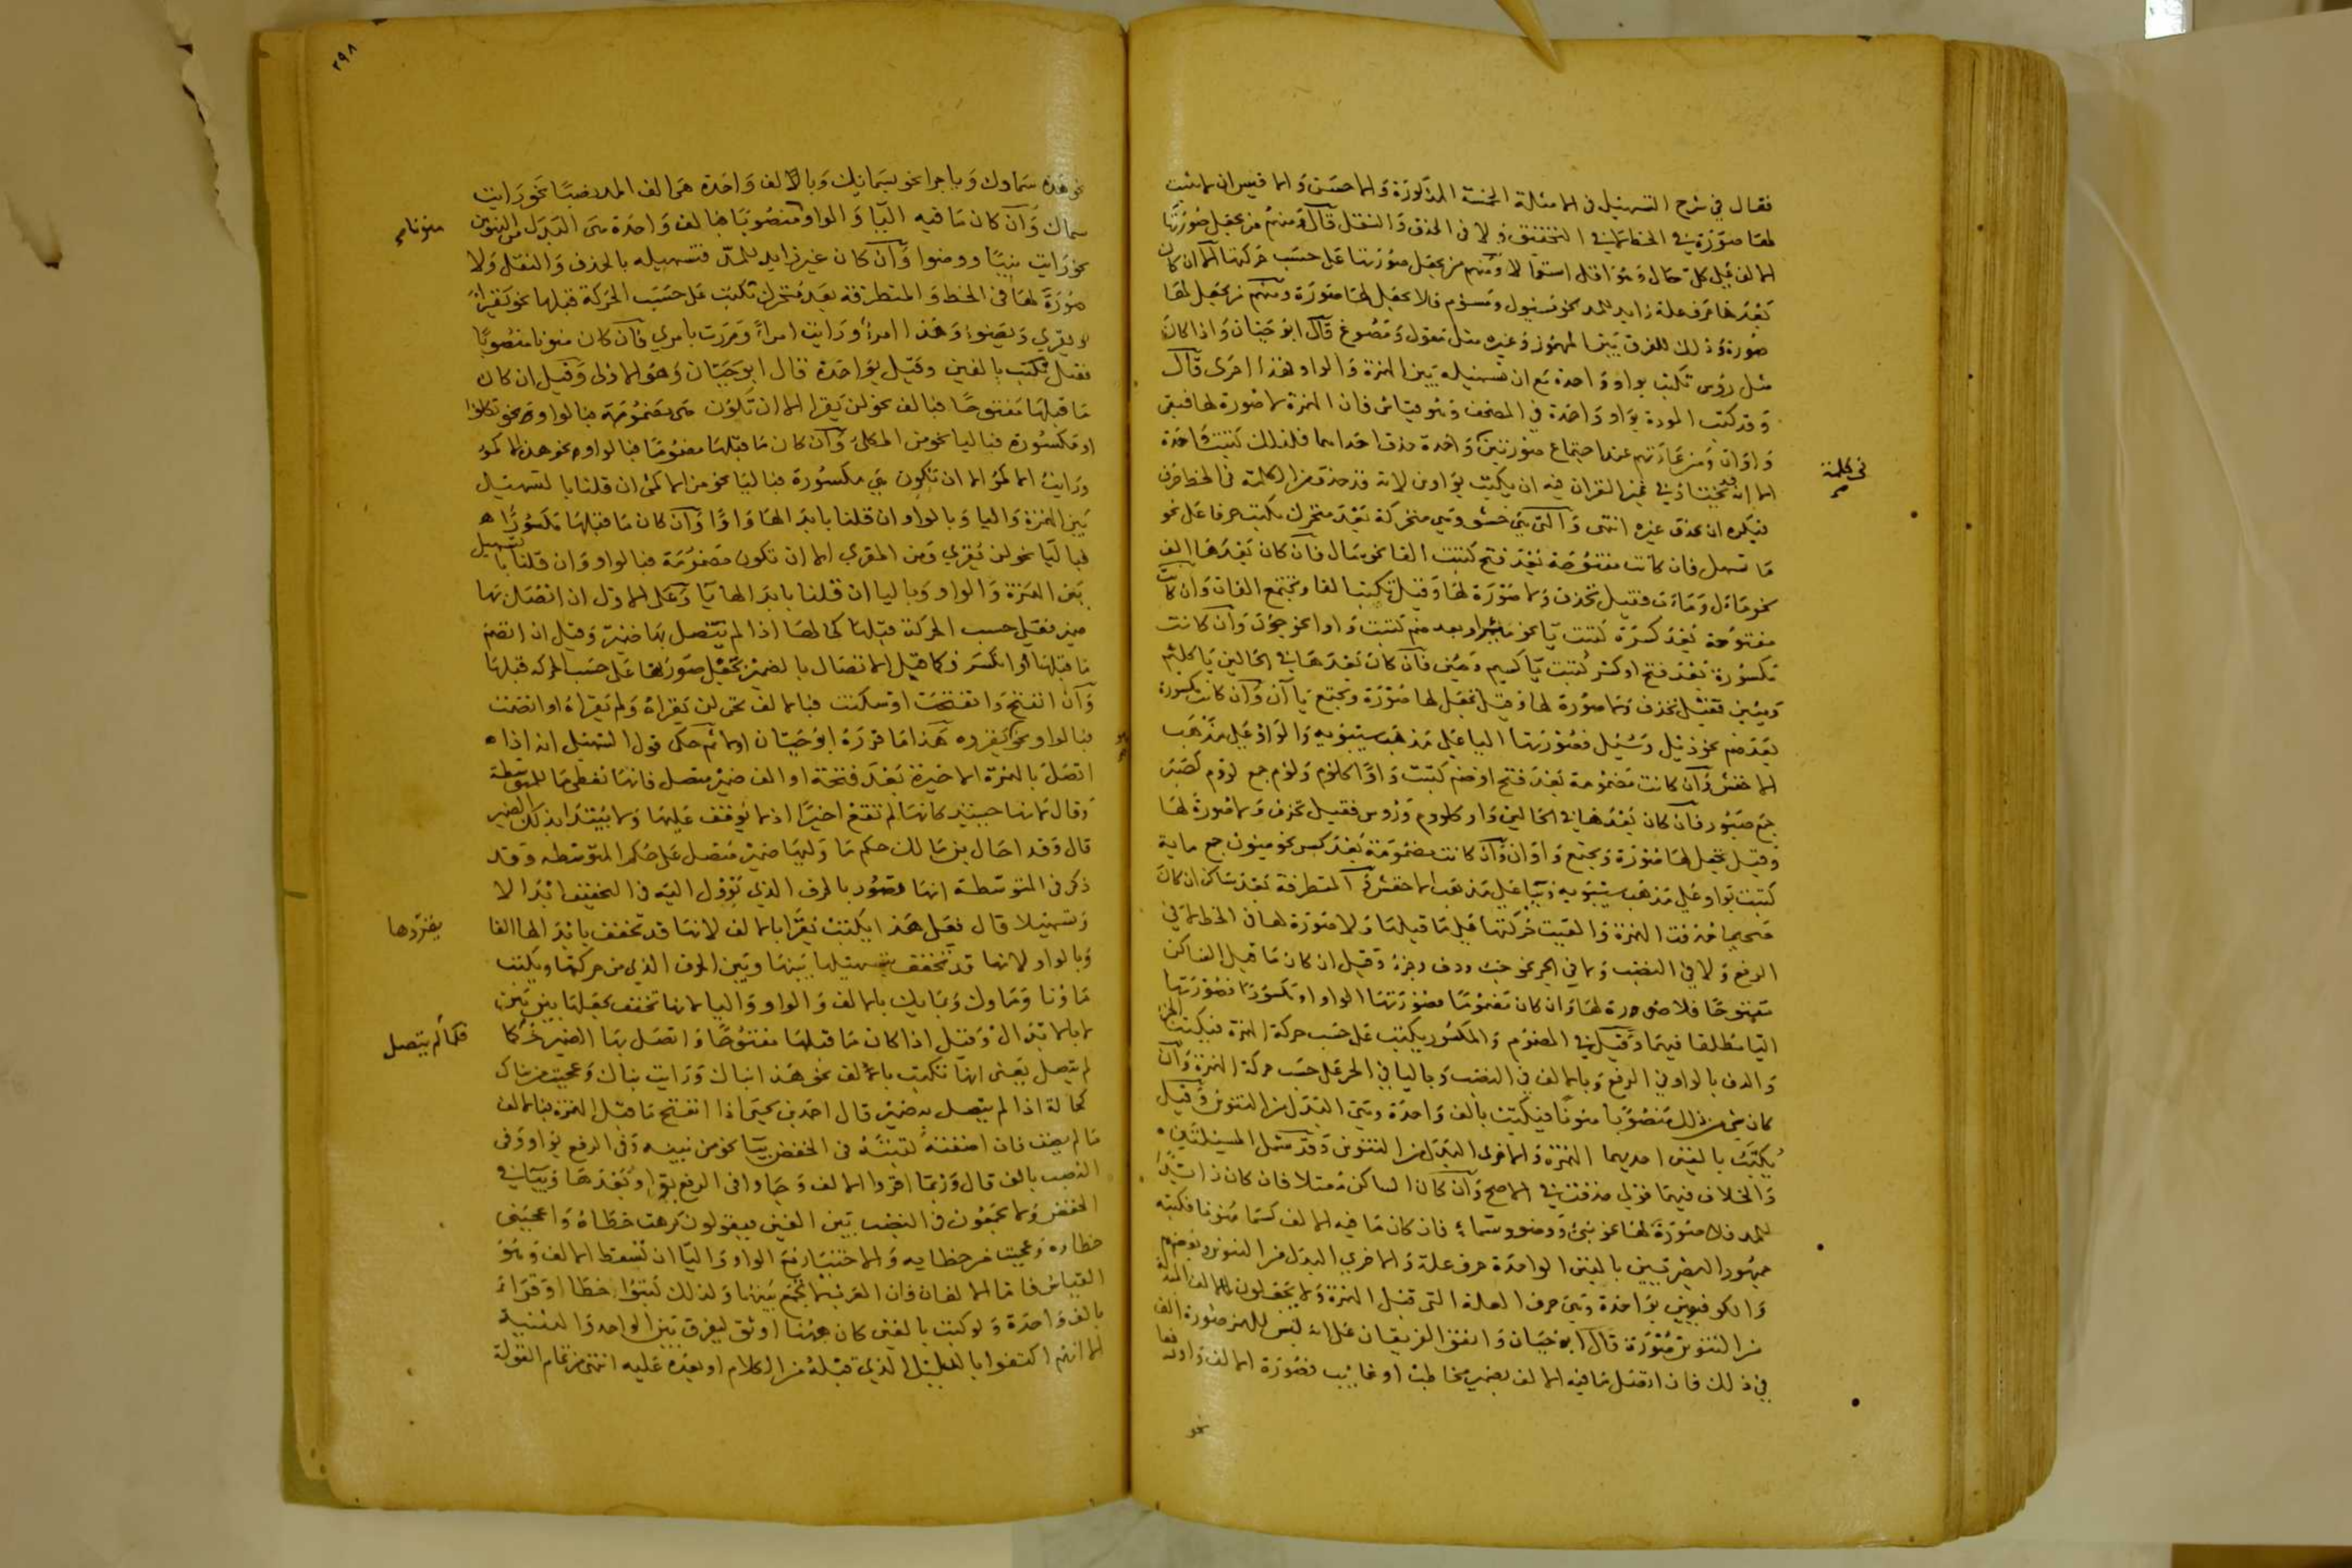 فقال في شرح التسهيل في الامثلة الخمسة المذكورة والاحسن والاقيس ان لا تثبت
لها صورة في الخط لا في التحقيق ولا في الحذف والنقل قال ومنهم من يجعل صورتها
الالف على كل حال وهو اقل استعمالا ومنهم من يجعل صورتها على حسب حركتها الا ان كان
بعدها حرف علة زايد للمد نحو مسئول ومسؤم فلا يجعل لها صورة ومنهم من يجعل لها
صورة وذلك للفرق بين المهموز وغيره مثل مقول ومصوغ قال ابو حيان واذا كان
مثل رؤس تكتب بواو واحدة مع ان تسهيله بين الهمزة والواو فهذا احرى قال
وقد كتب الموءدة بواو واحدة في المصحف وهو قياس فان الهمزة لا صورة لها فبقى
واوان ومن عادتهم عند اجتماع صورتين في كلمة واحدة حذف احداهما فلذلك كتبت واحدة
الا انه قد يختار في غير القران فيه ان يكتب بواوين لانه قد حذف من الكلمة في الخط حرف
فيكره ان يحذف غيره انتهى والتي هي حشو وهي متحركة بعد متحرك تكتب حرفا على نحو
ما تسهل فان كانت مفتوحة بعد فتح كتبت الفا نحو سال فان كان بعدها الف
نحو مآل ومآب فقيل تحذف ولا صورة لها وقيل تكتب الفا وتجتمع الفان وان كانت
مفتوحة بعد كسرة كتبت يا نحو مئر او بعد ضم كتبت واوا نحو جؤن وان كانت
مكسورة بعد فتح او كسر كتبت يا كسيم ومئين فان كان بعدها في الحالين يا كلئيم
ومئين فقيل تحذف ولا صورة لها وقيل يجعل لها صورة ويجتمع يا آن وان كانت مكسورة
بعد ضم نحو دئل وسئل فصورتها اليا على مذهب سيبويه والواو على مذهب
الاخفش وان كانت مضمومة بعد فتح او ضم كتبت واوا كلؤم ولؤم جمع لؤوم كصبر
جمع صبور فان كان بعدها في الحالين واو كلؤوم ورؤس فقيل تحذف ولا صورة لها
وقيل يجعل لها صورة ويجتمع واوان وان كانت مضمومة بعد كسر نحو مئون جمع ماية
كتبت بواو على مذهب سيبويه وبيا على مذهب الاخفش والمتطرفة بعد ساكن ان كان
صحيحا حذفت الهمزة والقيت حركتها على ما قبلها ولا صورة لها في الخط لا في
الرفع ولا في النصب ولا في الجر نحو خبء ودفء وجزء وقيل ان كان ما قبل الساكن
مفتوحا فلا صورة لها وان كان مضموما فصورتها الواو او مكسورا فصورتها
اليا مطلقا فيهما وقيل في المضموم والمكسور يكتب على حسب حركة الهمزة فيكتب الجزء
والدفء بالواو في الرفع وبالالف في النصب وباليا في الجر على حسب حركة الهمزة وان
كان شي من ذلك منصوبا منونا فيكتب بالف واحدة وهي البدل من التنوين وقيل
يكتب بالفين احديهما الهمزة والاخرى البدل من التنوين وقد مثل المسئلتين
والخلاف فيهما فولي حذفت في الاصح وان كان الساكن معتلا فان كان زايدا
للمد فلا صورة لها نحو نبئ ووضوء وسماء فان كان ما فيه الالف كسما منونا فكتبه
جمهور البصريين بالفين الواحدة حرف علة والاخري البدل من التنوين وبعضهم
والكوفيون بواحدة وهي حرف العلة التي قبل الهمزة ولا يجعلون للالف المبدلة
من التنوين صورة قال ابو حيان واتفق الفريقان على انه ليس للهمز صورة الف
في ذلك فان اتصل ما فيه الالف بضمير مخاطب او غائب فصورة الالف واو رفعا
نحو
في كلمة
صح
٢٩٨
نحو هذه سماوك وباجرا نحو بسمائك وبالالف واحدة هي الف المد نصبا نحو رايت
سماك وان كان ما فيه اليا والواو منصوبا فبالف واحدة هي البدل من التنوين
نحو رايت نبيا ووضوا وان كان غير زايد للمد فتسهيله بالحذف والنقل ولا
صورة لها في الخط والمتطرفة بعد متحرك تكتب على حسب الحركة قبلها نحو يقرأ
ويقري ويوضؤ وهذا امرؤ ورايت امراً ومررت بامري فان كان منونا منصوبا
فقيل يكتب بالفين وقيل بواحدة قال ابو حيان وهو الاولى وقيل ان كان
ما قبلها مفتوحا فبالف نحو لن يقرا الا ان تكون هي مضمومة فبالواو نحو تكلؤا
او مكسورة فباليا نحو من المكلئ وان كان ما قبلها مضموما فبالواو نحو هذه الاكمؤ
ورايت الاكمؤ الا ان تكون هي مكسورة فباليا نحو من الاكمئ ان قلنا بالتسهيل
بين الهمزة واليا وبالواو ان قلنا بابدالها واوا وان كان ما قبلها مكسورا
فباليا نحو لن يقرئ ومن المقرئ الا ان تكون مضمومة فبالواو وان قلنا بالتسهيل
بين الهمزة والواو وباليا ان قلنا بابدالها يا وعلى الاول ان اتصل بها
ضمير فقيل حسب الحركة قبلها كحالها اذا لم يتصل بها ضمير وقيل ان انضم
ما قبلها او انكسر فكما قبل الاتصال بالضمير تجعل صورتها على حسب الحركة قبلها
وان انفتح وانفتحت او سكنت فبالالف نحو لن يقراه ولم يقراه او انضمت
فبالواو نحو يقروه هذا ما قرره ابو حيان اولا ثم حكى قول التسهيل انه اذا
اتصل بالهمزة الاخيرة بعد فتحة او الف ضمير متصل فانها تعطى ما للمتوسطة
وقال لانها حينئذ كانها لم تقع اخيرا اذ لا يوقف عليها ولا يبتدا بذلك الضمير
قال وقد احال بن مالك حكم ما وليها ضمير متصل على حكم المتوسطه وقد
ذكر في المتوسطة انها تصور بالحرف الذي تؤول اليه في التخفيف ابدالا
وتسهيلا قال فعلى هذا يكتب يقرا بالالف لانها قد تخفف بابدالها الفا
وبالواو لانها قد تخفف بتسهيلها بينها وبين الحرف الذي من حركتها ويكتب
ماؤنا ومماوك وبمائك بالالف والواو واليا لانها تخفف بجعلها بين بين
لا بالابدال وقيل اذا كان ما قبلها مفتوحا واتصل بها الضمير فكما
لم يتصل يعني انها تكتب بالالف نحو هذا نباك ورايت نباك وعجبت من نباك
كحاله اذا لم يتصل به ضمير قال احمد بن يحيى اذا انفتح ما قبل الهمزة فبالالف
ما لم يضف فان اضفته كتبته في الخفض بيا نحو من نبيه وفي الرفع بواو وفي
النصب بالف قال وربما اقروا الالف وجاوا في الرفع بواو بعدها وبيا في
الخفض ولا يجمعون في النصب بين الفين فيقولون كرهت خطاه واعجبني
خطاوه وعجبت من خطايه والاختيار مع الواو واليا ان تسقط الالف وهو
القياس فاما الالفان فان العرب لا تجمع بينهما ولذلك كتبوا خطا وقراء
بالف واحدة ولو كتبت بالفين كان ههنا اوثق ليفرق بين الواحد والتثنية
الا انهم اكتفوا بالدليل الذي قبله من الكلام او بعده عليه انتهى من تمام القولة
منونا صح
يضردها
فكما لم يتصل